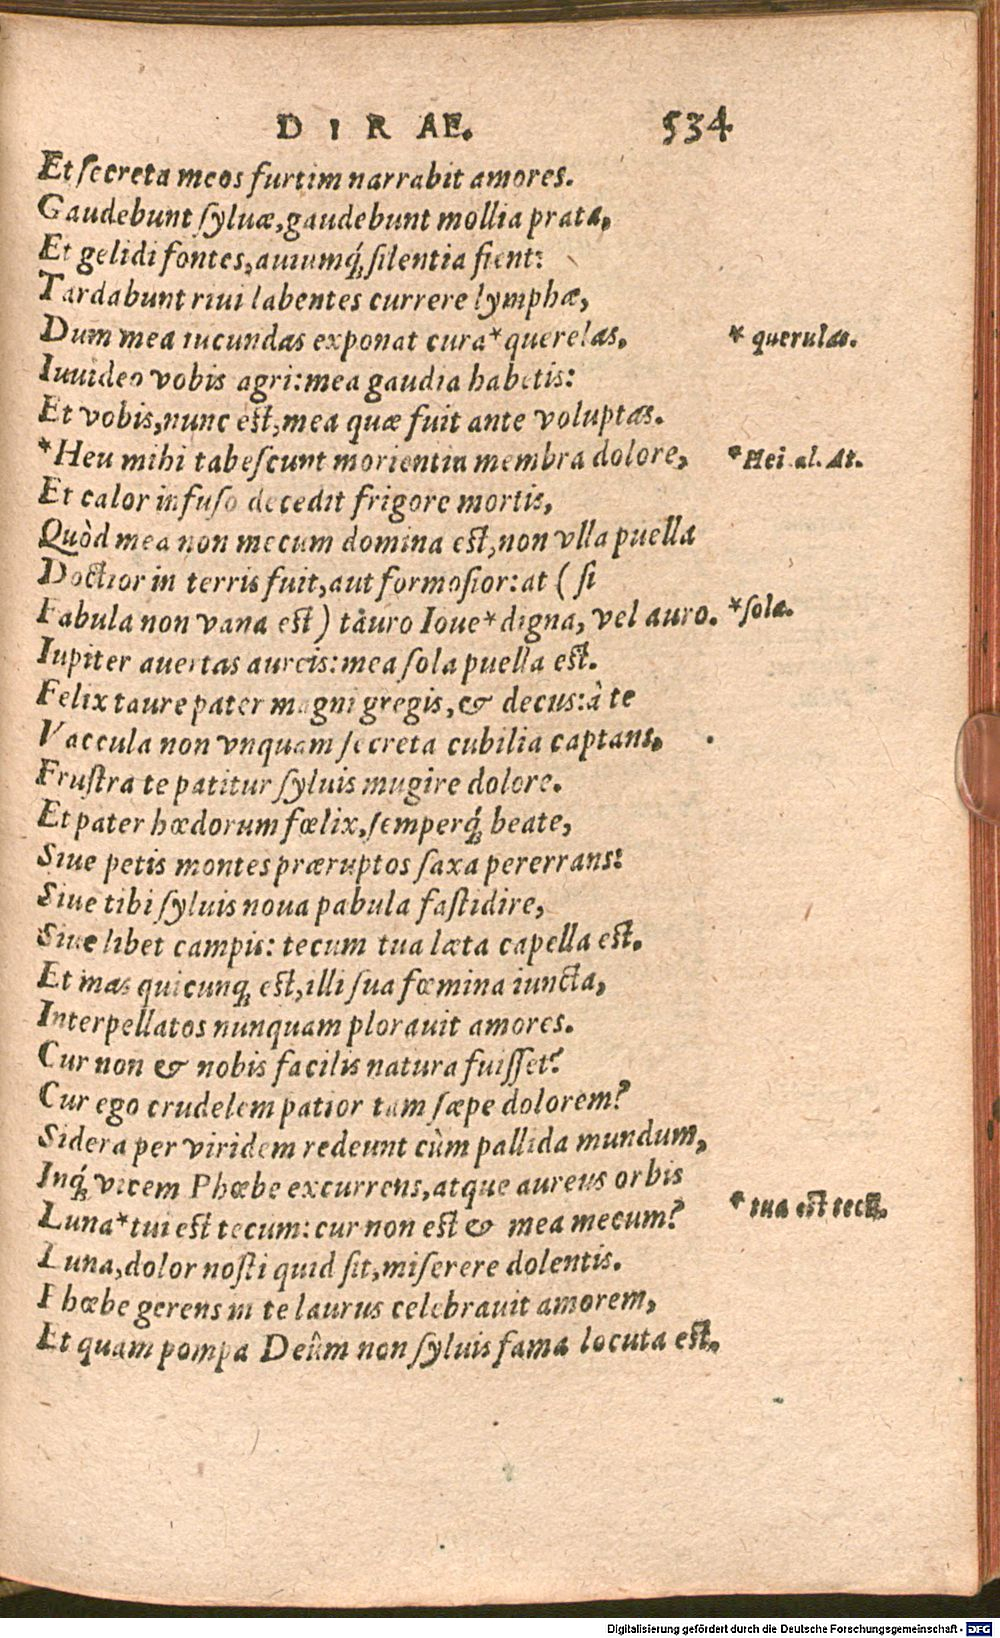 DIRAE. 534
Et ſecreta meos furtim narrabit amores.
Gaudebunt ſyluæ, gaudebunt mollia prata,
Et gelidi fontes, auiumq́; ſilentia fient:
Tardabunt riui labentes currere lymphæ,
Dum mea iucundas exponat cura * querelas. * querulas.
Inuideo vobis agri: mea gaudia habetis:
Et vobis, nunc eſt, mea quæ fuit ante voluptas.
* Heu mihi tabeſcunt morientia membra dolore, * Hei al. At.
Et calor infuſo decedit frigore mortis,
Quòd mea non mecum domina eſt, non vlla puella
Doctior in terris fuit, aut formoſior: at (ſi
Fabula non vana eſt) tauro Ioue * digna, vel auro. * ſola.
Iupiter auertas aureis: mea ſola puella eſt.
Felix taure pater magni gregis, & decus: à te
Vaccula non vnquam ſecreta cubilia captans,
Fruſtra te patitur ſyluis mugire dolore.
Et pater hœdorum fœlix, ſemperq́; beate,
Siue petis montes præruptos ſaxa pererrans:
Siue tibi ſyluis noua pabula faſtidire,
Siue libet campis: tecum tua læta capella eſt.
Et mas quicunq; eſt, illi ſua fœmina iuncta,
Interpellatos nunquam plorauit amores.
Cur non & nobis facilis natura fuiſſet?
Cur ego crudelem patior tam ſæpe dolorem?
Sidera per viridem redeunt cùm pallida mundum,
Inq́; vicem Phœbe excurrens, atque aureus orbis
Luna * tui eſt tecum: cur non eſt & mea mecum? * tua eſt tecũ.
Luna, dolor noſti quid ſit, miſerere dolentis.
Phœbe gerens in te laurus celebrauit amorem,
Et quam pompa Deûm non ſyluis fama locuta eſt,
Digitalisierung gefördert durch die Deutsche Forschungsgemeinschaft - DFG